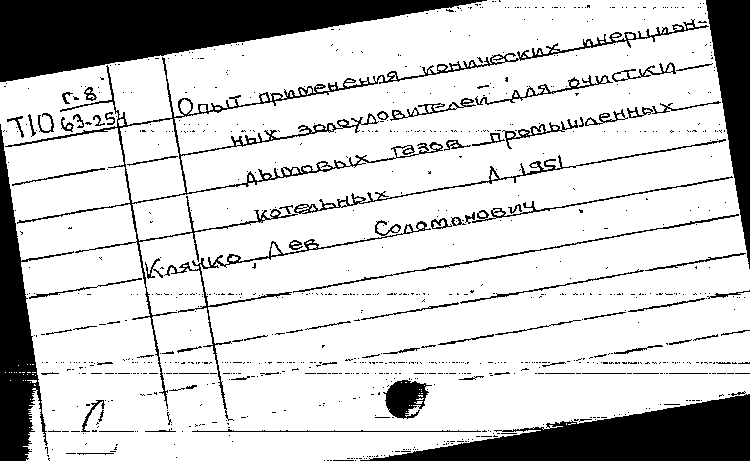 г-8
Т10 63-254
Опыт применения конических инерцион-
ных золоуловителей для очистки
дымовых газов промышленных
котельных Л, 1951
Клячко, Лев Соломонович